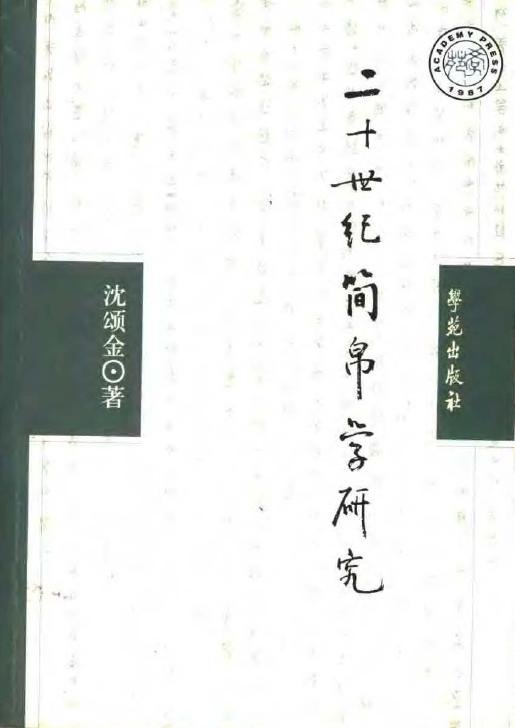 二十世纪简帛学研究
沈颂金⊙著
學苑出版社
ACADEMY PRESS
1987